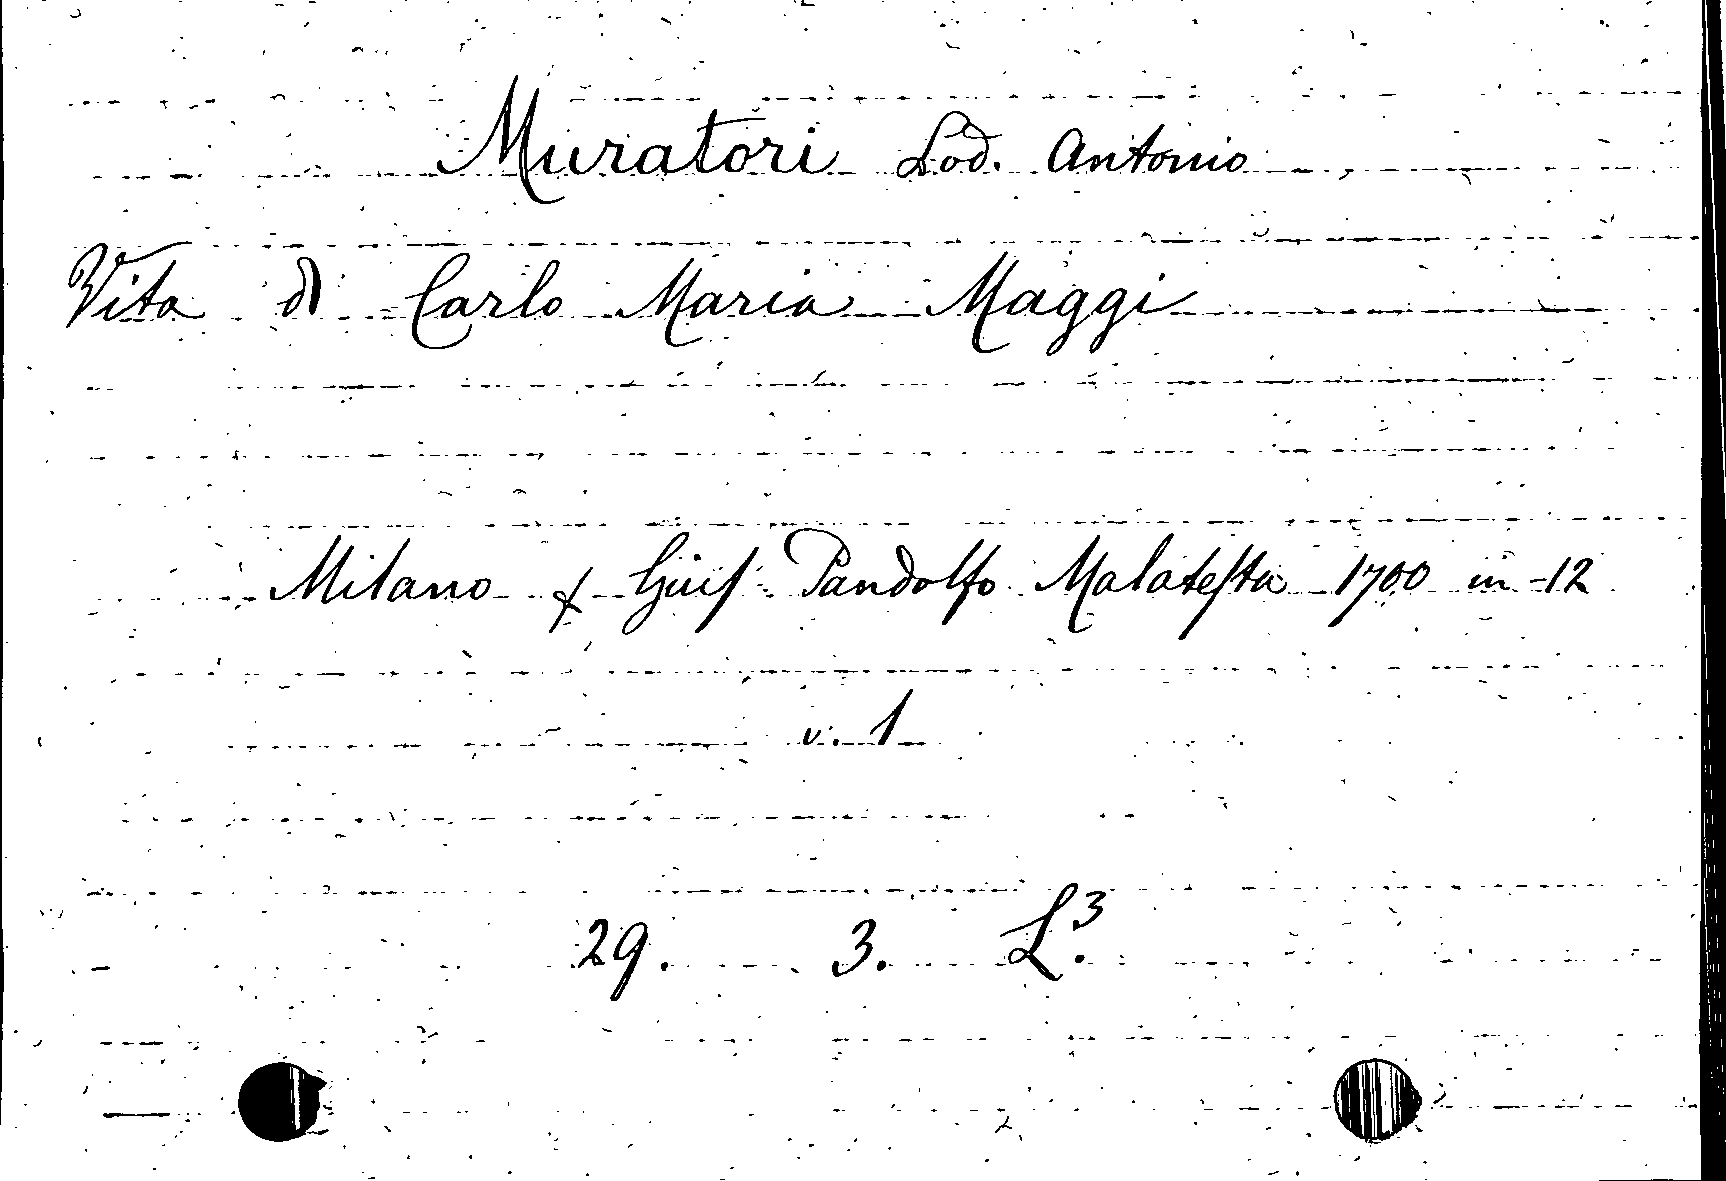 Muratori Lod. Antonio
Vita di Carlo Maria Maggi
Milano f Giuſ. Pandolfo Malateſta 1700 in-12
v. 1
29. 3. L.3